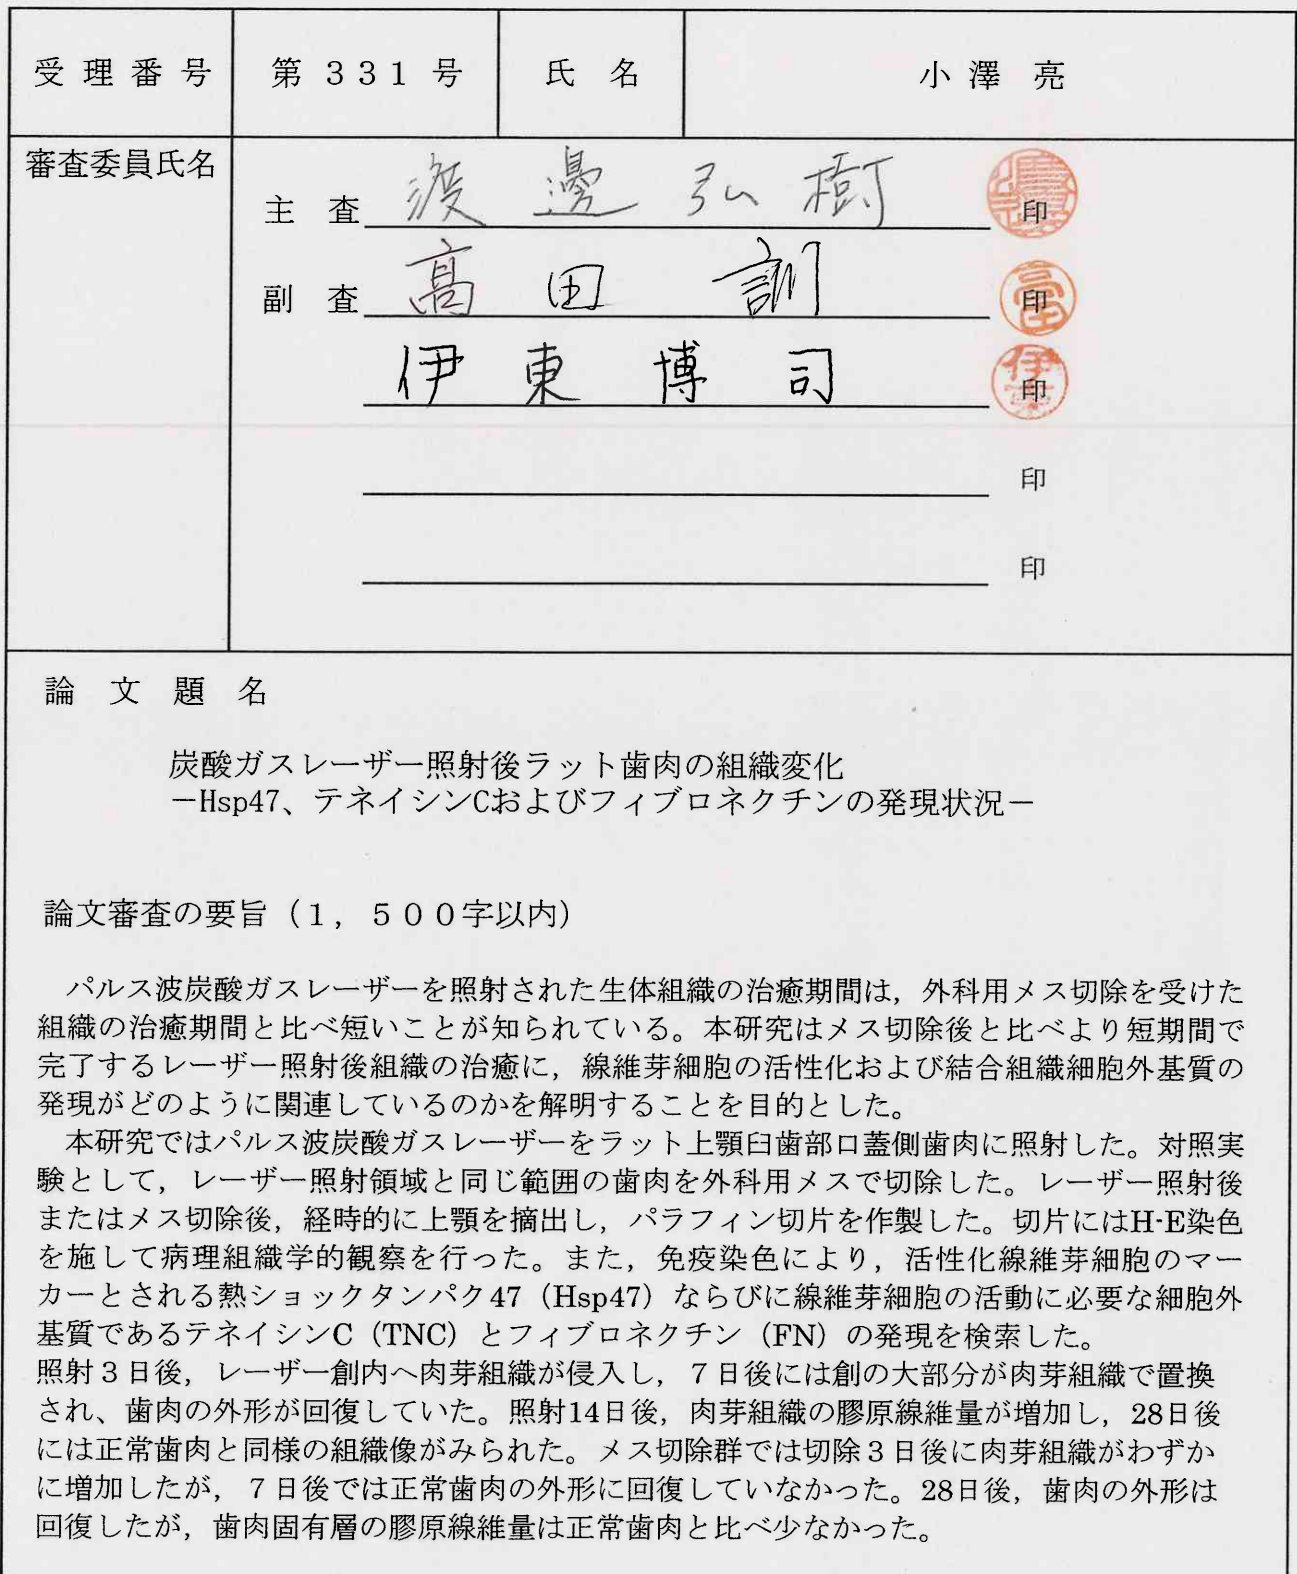 受理番号 第３３１号 氏名 小澤 亮
審査委員氏名
主 査 渡邊弘樹 印
副 査 高田 訓 印
伊東博司 印
印
印
論文題名
炭酸ガスレーザー照射後ラット歯肉の組織変化
－Hsp47、テネイシンCおよびフィブロネクチンの発現状況－
論文審査の要旨（１，５００字以内）
パルス波炭酸ガスレーザーを照射された生体組織の治癒期間は，外科用メス切除を受けた
組織の治癒期間と比べ短いことが知られている。本研究はメス切除後と比べより短期間で
完了するレーザー照射後組織の治癒に，線維芽細胞の活性化および結合組織細胞外基質の
発現がどのように関連しているのかを解明することを目的とした。
本研究ではパルス波炭酸ガスレーザーをラット上顎臼歯部口蓋側歯肉に照射した。対照実
験として，レーザー照射領域と同じ範囲の歯肉を外科用メスで切除した。レーザー照射後
またはメス切除後，経時的に上顎を摘出し，パラフィン切片を作製した。切片にはH-E染色
を施して病理組織学的観察を行った。また，免疫染色により，活性化線維芽細胞のマー
カーとされる熱ショックタンパク47（Hsp47）ならびに線維芽細胞の活動に必要な細胞外
基質であるテネイシンC（TNC）とフィブロネクチン（FN）の発現を検索した。
照射３日後，レーザー創内へ肉芽組織が侵入し，７日後には創の大部分が肉芽組織で置換
され、歯肉の外形が回復していた。照射14日後，肉芽組織の膠原線維量が増加し，28日後
には正常歯肉と同様の組織像がみられた。メス切除群では切除３日後に肉芽組織がわずか
に増加したが，７日後では正常歯肉の外形に回復していなかった。28日後，歯肉の外形は
回復したが，歯肉固有層の膠原線維量は正常歯肉と比べ少なかった。